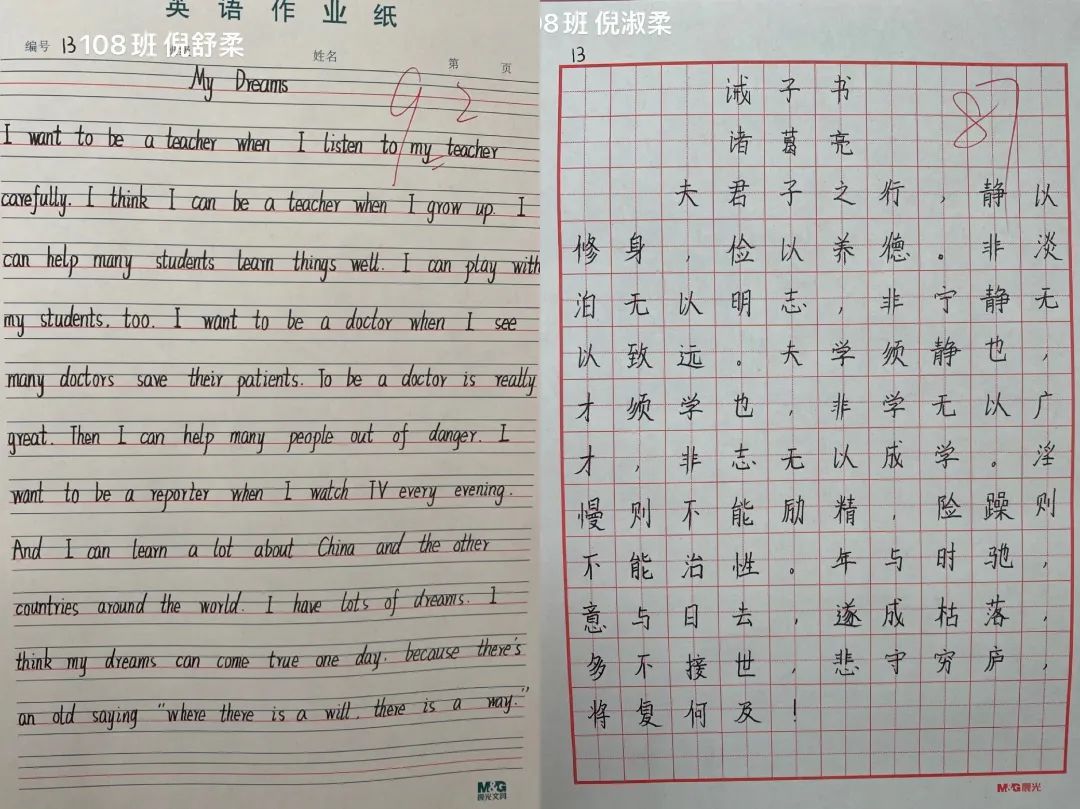 英语作业纸
编号 13 108班 倪舒柔
姓名
第 页
My Dreams
92
I want to be a teacher when I listen to my teacher
carefully. I think I can be a teacher when I grow up. I
can help many students learn things well. I can play with
my students, too. I want to be a doctor when I see
many doctors save their patients. To be a doctor is really
great. Then I can help many people out of danger. I
want to be a reporter when I watch TV every evening.
And I can learn a lot about China and the other
countries around the world. I have lots of dreams. I
think my dreams can come true one day, because there's
an old saying "where there is a will, there is a way."
M&G
晨光文具
08班 倪淑柔
13
诫子书
87
诸葛亮
夫君子之行，静以
修身，俭以养德。非淡
泊无以明志，非宁静无
以致远。夫学须静也，
才须学也，非学无以广
才，非志无以成学。淫
慢则不能励精，险躁则
不能治性。年与时驰，
意与日去，遂成枯落，
多不接世，悲守穷庐，
将复何及！
M&G晨光